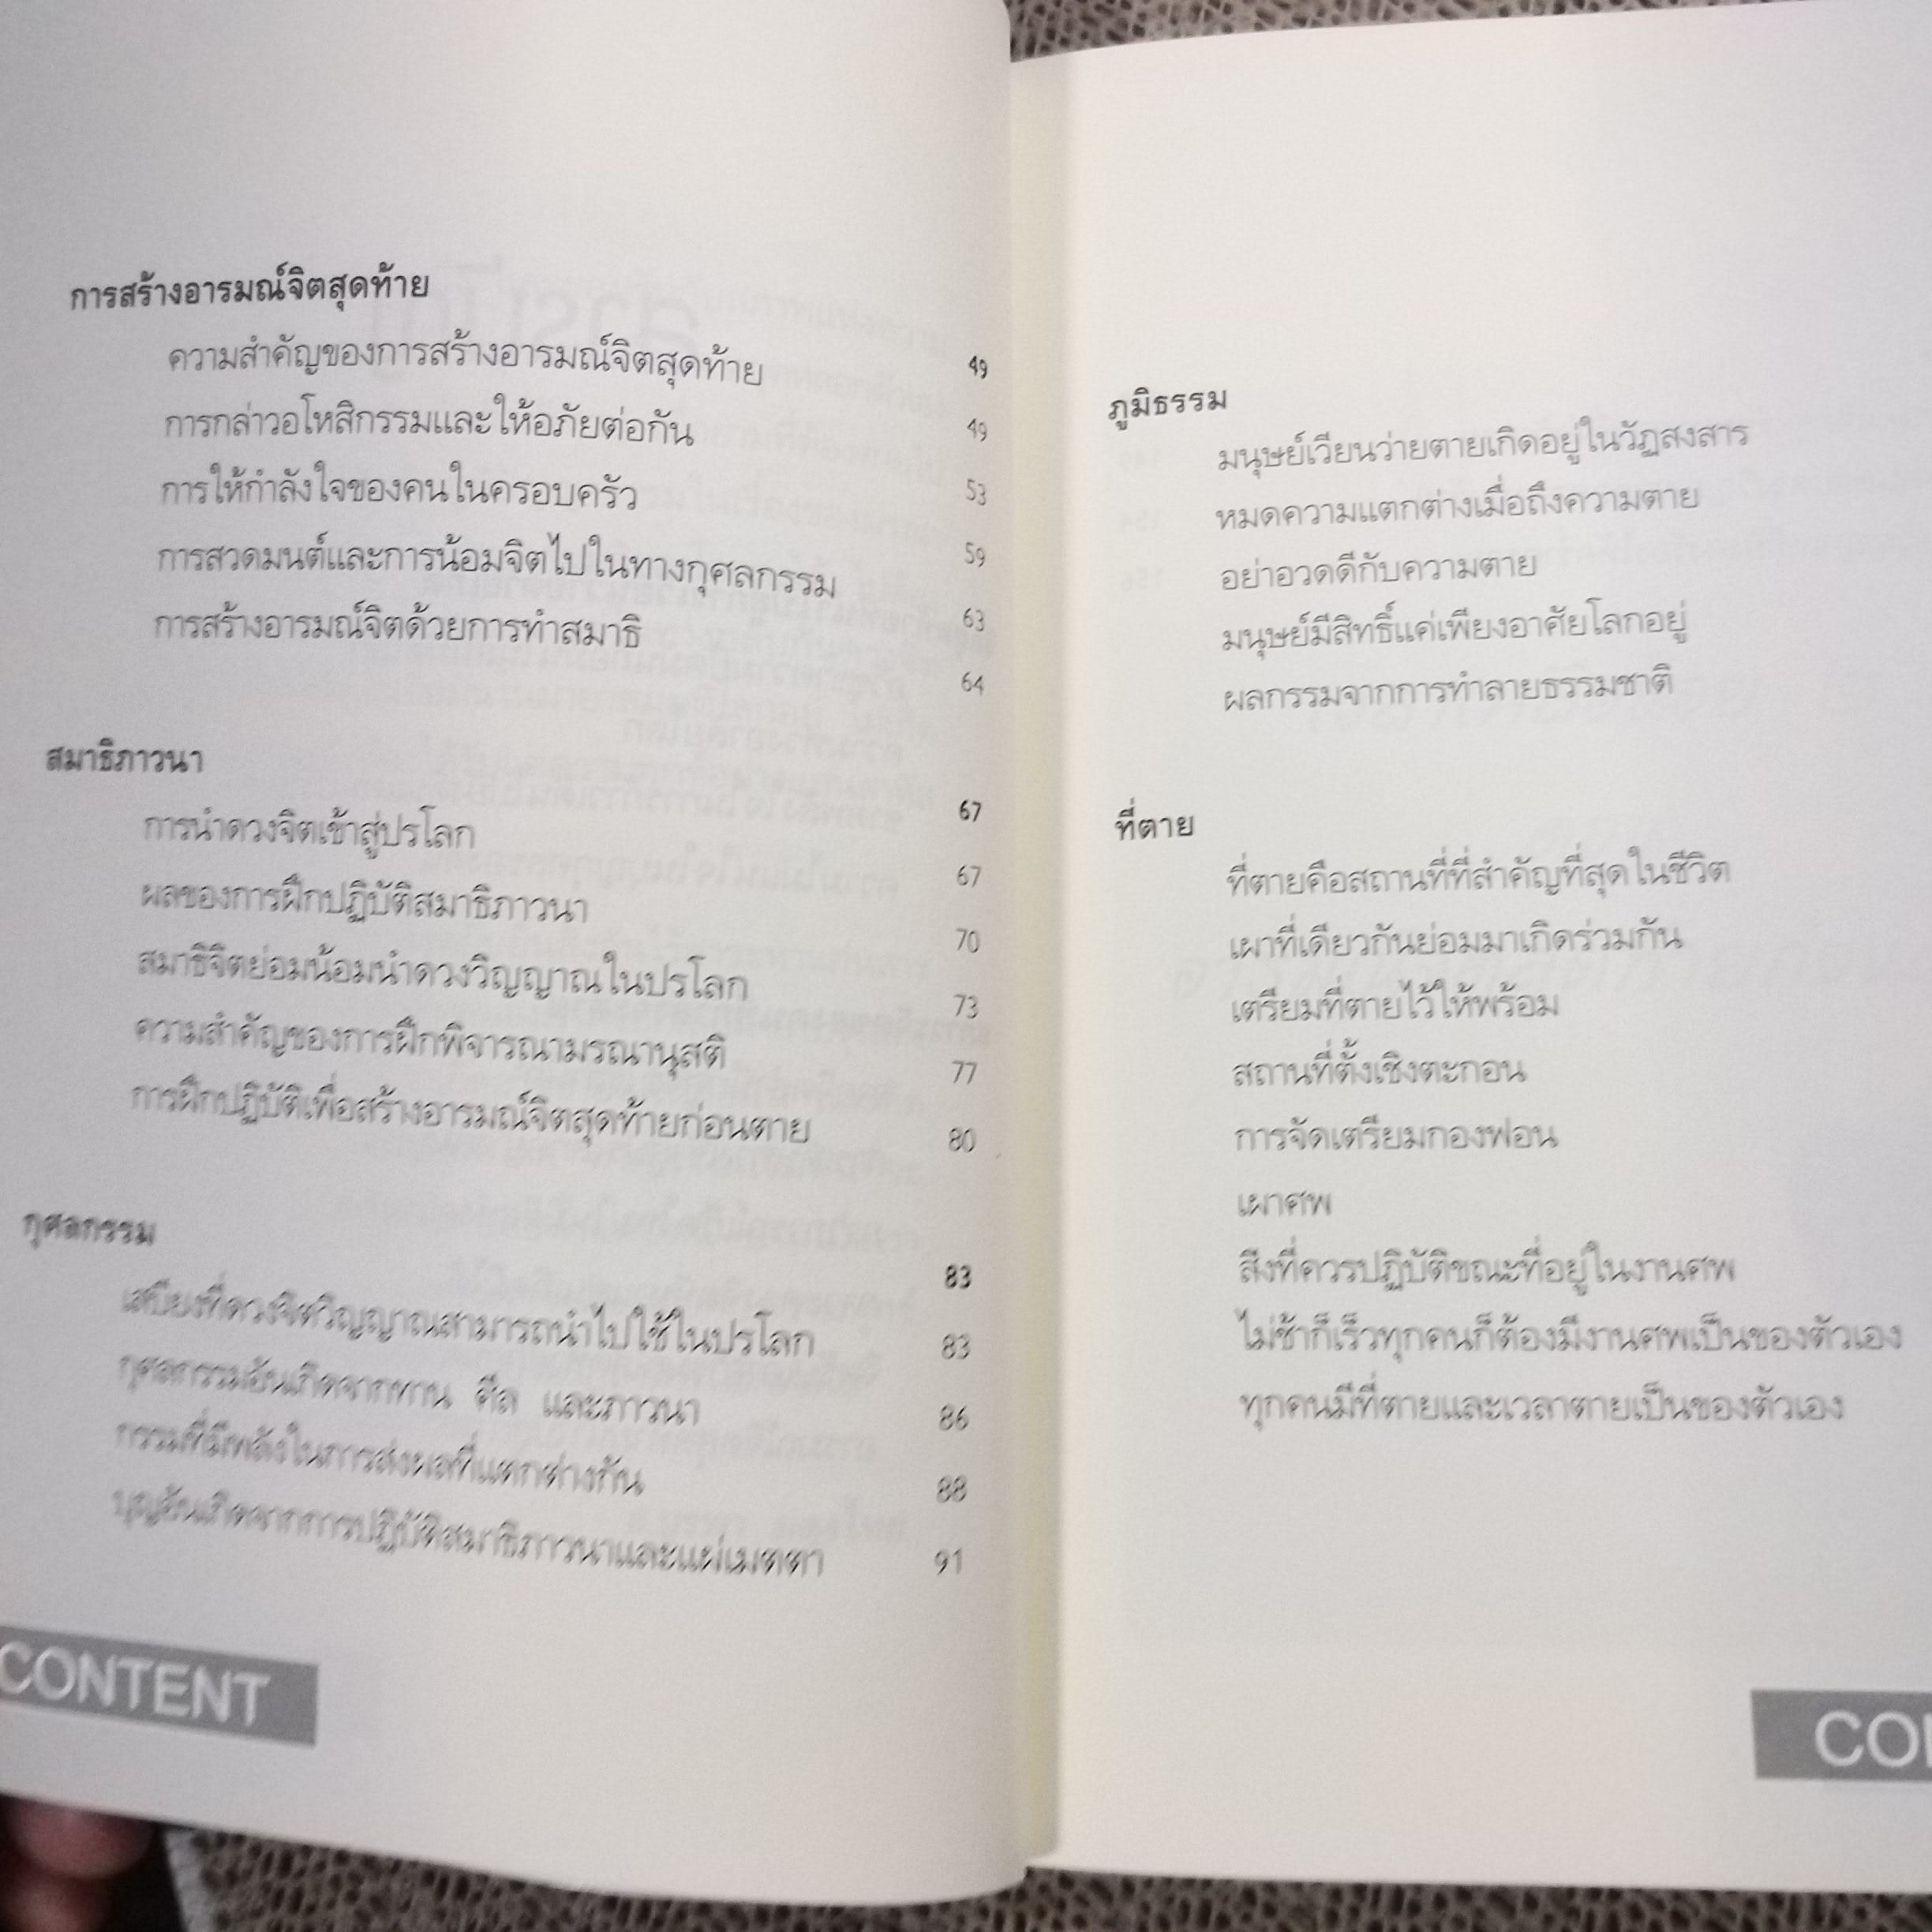 การสร้างอารมณ์จิตสุดท้าย 49
ความสำคัญของการสร้างอารมณ์จิตสุดท้าย 49
การกล่าวอโหสิกรรมและให้อภัยต่อกัน 53
การให้กำลังใจของคนในครอบครัว 59
การสวดมนต์และการน้อมจิตไปในทางกุศลกรรม 63
การสร้างอารมณ์จิตด้วยการทำสมาธิ 64
สมาธิภาวนา 67
การนำดวงจิตเข้าสู่ปรโลก 67
ผลของการฝึกปฏิบัติสมาธิภาวนา 70
สมาธิจิตย่อมน้อมนำดวงวิญญาณในปรโลก 73
ความสำคัญของการฝึกพิจารณามรณานุสติ 77
การฝึกปฏิบัติเพื่อสร้างอารมณ์จิตสุดท้ายก่อนตาย 80
กุศลกรรม 83
เสบียงที่ดวงจิตวิญญาณสามารถนำไปใช้ในปรโลก 83
กุศลกรรมอันเกิดจากทาน ศีล และภาวนา 86
กรรมที่มีพลังในการส่งผลที่แตกต่างกัน 88
บุญอันเกิดจากการปฏิบัติสมาธิภาวนาและแผ่เมตตา 91
CONTENT
ภูมิธรรม
มนุษย์เวียนว่ายตายเกิดอยู่ในวัฏสงสาร
หมดความแตกต่างเมื่อถึงความตาย
อย่าอวดดีกับความตาย
มนุษย์มีสิทธิ์แค่เพียงอาศัยโลกอยู่
ผลกรรมจากการทำลายธรรมชาติ
ที่ตาย
ที่ตายคือสถานที่ที่สำคัญที่สุดในชีวิต
เผาที่เดียวกันย่อมมาเกิดร่วมกัน
เตรียมที่ตายไว้ให้พร้อม
สถานที่ตั้งเชิงตะกอน
การจัดเตรียมกองฟอน
เผาศพ
สิ่งที่ควรปฏิบัติขณะที่อยู่ในงานศพ
ไม่ช้าก็เร็วทุกคนก็ต้องมีงานศพเป็นของตัวเอง
ทุกคนมีที่ตายและเวลาตายเป็นของตัวเอง